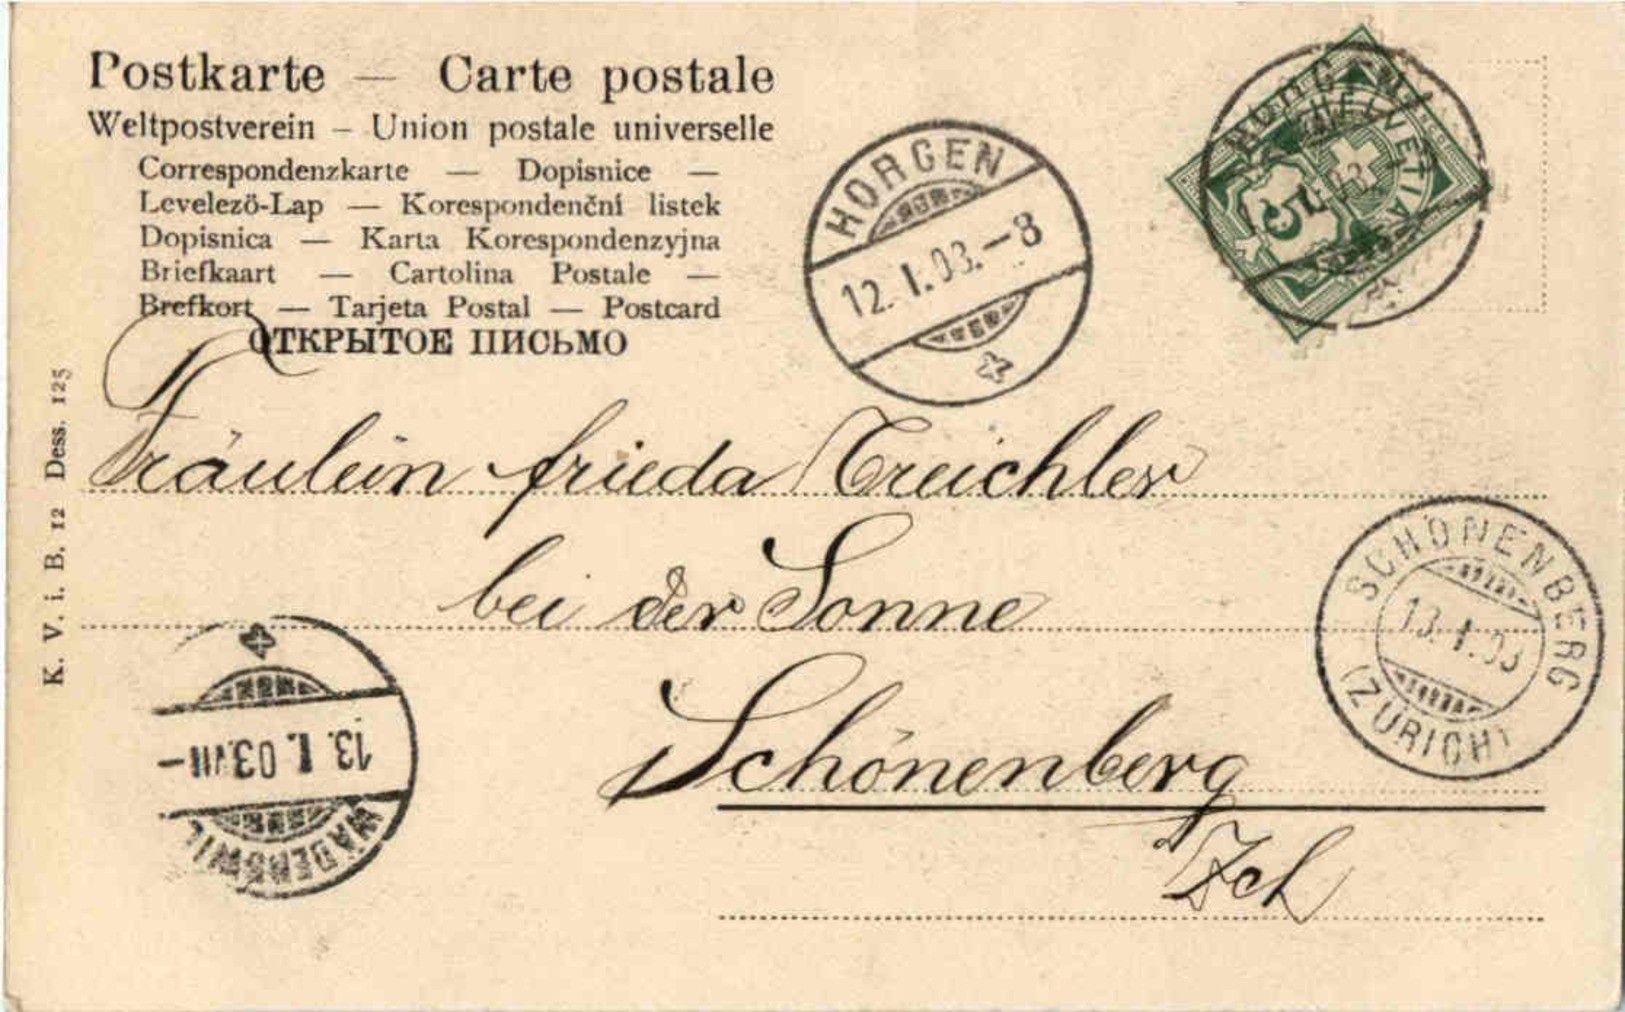 Postkarte — Carte postale
Weltpostverein – Union postale universelle
Correspondenzkarte — Dopisnice —
Levelező-Lap — Korespondenční listek
Dopisnica — Karta Korespondenzyjna
Briefkaart — Cartolina Postale —
Brefkort — Tarjeta Postal — Postcard
ОТКРЫТОЕ ПИСЬМО
HORGEN
12.I.03.–8
HELVETIA
5
K. V. i. B. 12 Dess. 125
Fräulein Frieda Treichler
bei der Sonne
Schönenberg
Zch
SCHÖNENBERG
13.I.03
(ZÜRICH)
13.I.03.VII–
WÄDENSWIL